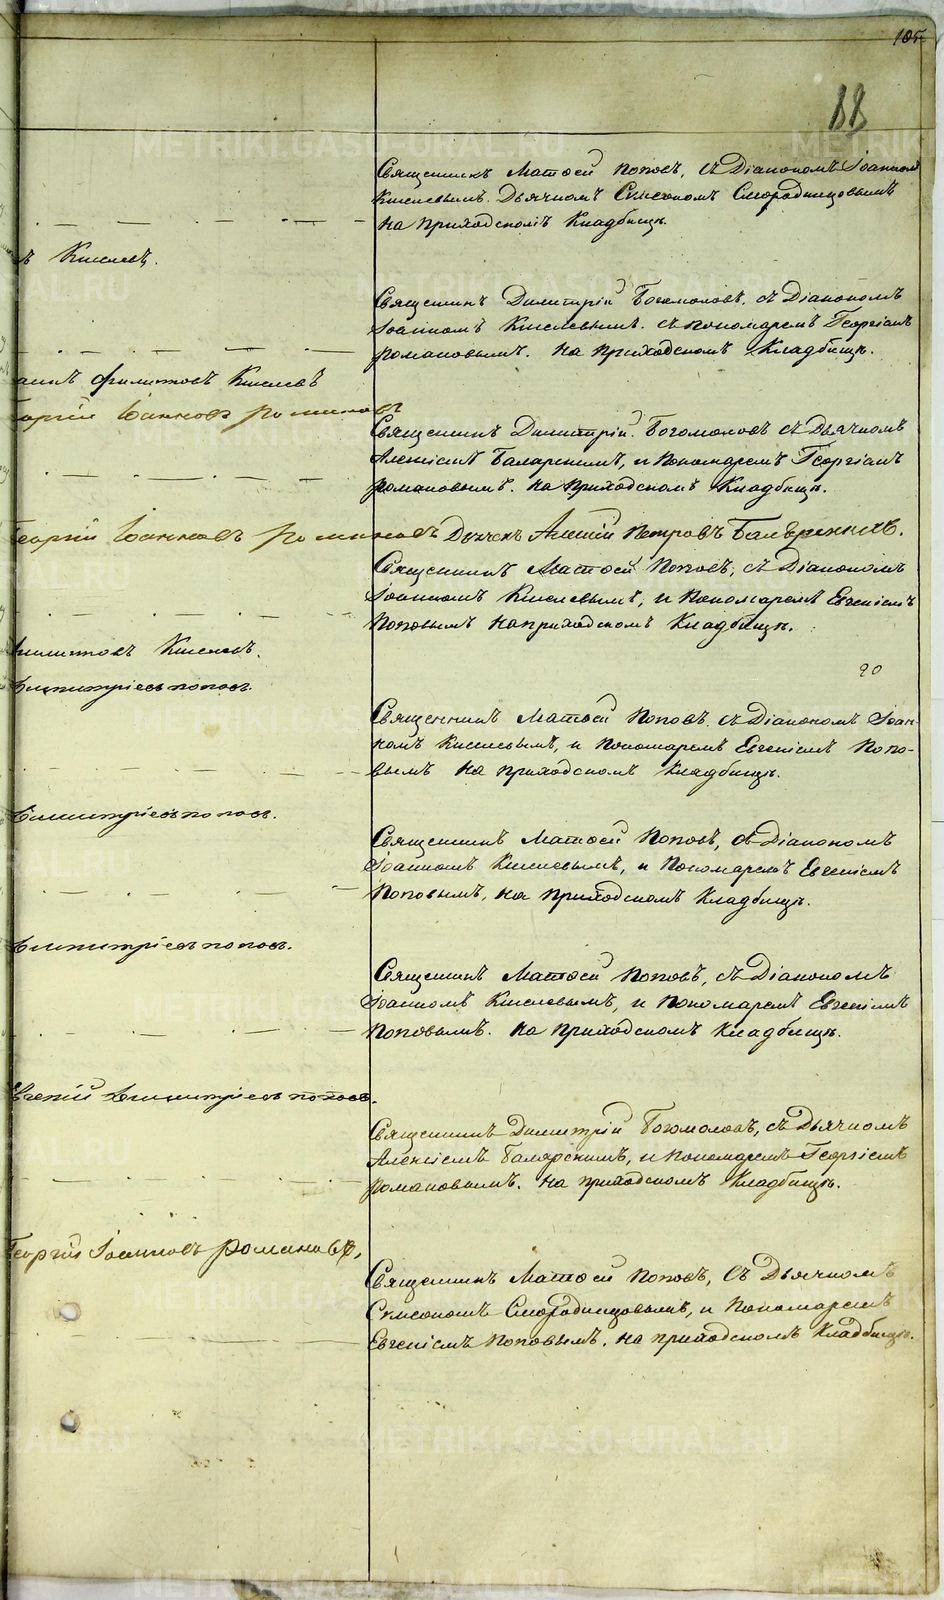 105
88
Священникъ Матѳей Поповъ, съ Діакономъ Іоанномъ
Киселевымъ. Дьячкомъ Симеономъ Смородинцовымъ
на приходскомъ кладбищѣ.
ъ Киселевъ.
Священникъ Димитрій Богомоловъ. съ Діакономъ
Іоанномъ Киселевымъ. съ пономаремъ Георгіемъ
Романовымъ. на приходскомъ кладбищѣ.
Филитовъ Киселевъ
Іоанновъ Романовъ
Священникъ Димитрій Богомоловъ съ Дьячкомъ
Алексіемъ Баляркинымъ, и Пономаремъ Георгіемъ
Романовымъ. на приходскомъ кладбищѣ.
Георгій Іоанновъ Романовъ Дьячекъ Алексій Петровъ
Священникъ Матѳей Поповъ, съ Діакономъ
Іоанномъ Киселевымъ, и Пономаремъ Евгеніемъ
Поповымъ на приходскомъ кладбищѣ.
Киселевъ.
Димитріевъ Поповъ.
20
Священникъ Матѳей Поповъ, съ Діакономъ Іоан-
номъ Киселевымъ, и Пономаремъ Евгеніемъ Попо-
вымъ на приходскомъ кладбищѣ.
Димитріевъ Поповъ.
Священникъ Матѳей Поповъ, съ Діакономъ
Іоанномъ Киселевымъ, и Пономаремъ Евгеніемъ
Поповымъ, на приходскомъ кладбищѣ.
Димитріевъ Поповъ.
Священникъ Матѳей Поповъ, съ Діакономъ
Іоанномъ Киселевымъ, и Пономаремъ Евгеніемъ
Поповымъ. на приходскомъ кладбищѣ.
Евгеній Димитріевъ Поповъ.
Священникъ Димитрій Богомоловъ, съ Дьячкомъ
Алексіемъ Баляркинымъ, и Пономаремъ Георгіемъ
Романовымъ. на приходскомъ кладбищѣ.
Георгій Іоанновъ Романовъ,
Священникъ Матѳей Поповъ, съ Дьячкомъ
Симеономъ Смородинцовымъ, и Пономаремъ
Евгеніемъ Поповымъ. на приходскомъ кладбищѣ.
METRIKI.GASO-URAL.RU